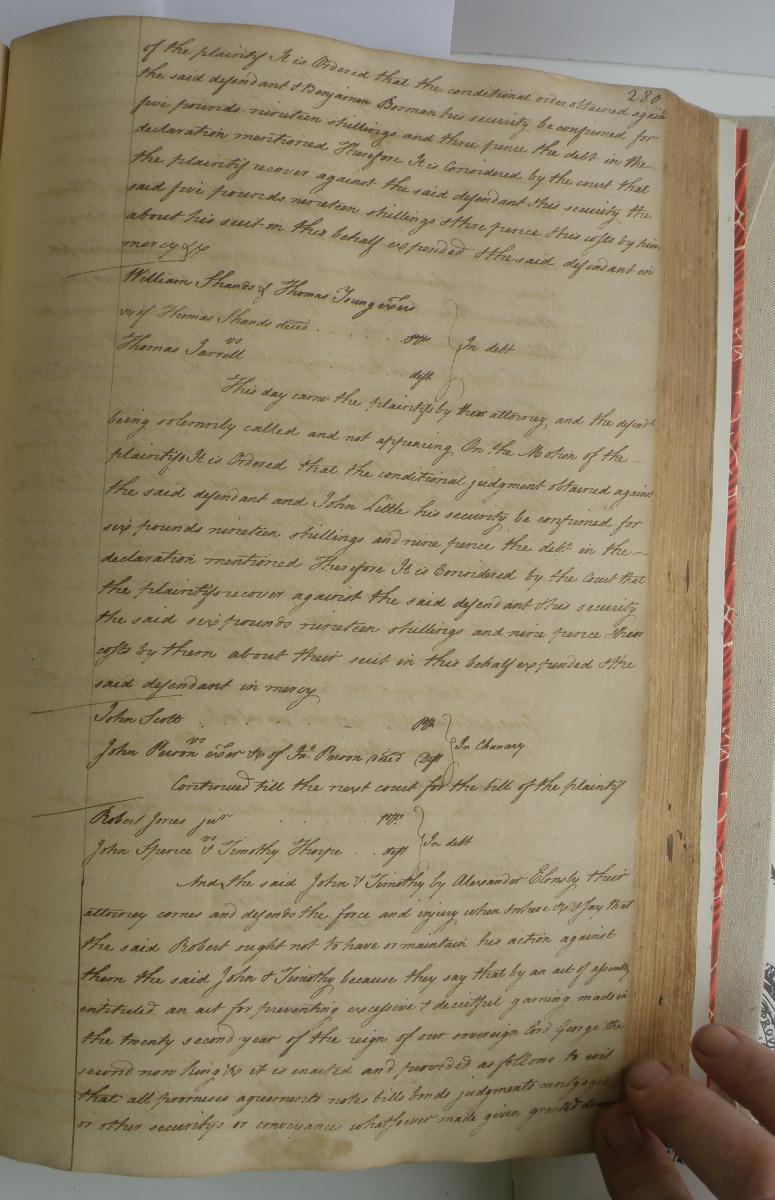 280
of the plaintif It is Ordered that the conditional order obtained again
the said defendant & Benjamen Boxman his security be confirmed for
five pounds nineteen shillings and three pence the debt in the
declaration mentioned Therefore It is Considered by the court that
the plaintif recover against the said defendant & his security the
said five pounds nineteen shillings & thre pence & his costs by him
about his suit in this behalf expended & the said defendant in
mercy &c
William Shands & Thomas Young exers
&c of Thomas Shands decd . . . . Plts
vs } In debt
Thomas Jarrell . . . deft
This day came the plaintifs by their attorney, and the defendt
being solemnly called and not appearing On the Motion of the
plaintifs It is Ordered that the conditional judgment obtained against
the said defendant and John Little his security be confirmed for
six pounds nineteen shillings and nine pence the debt in the
declaration mentioned Therefore It is Considered by the Court that
the plaintifs recover against the said defendant & his security
the said six pounds nineteen shillings and nine pence & their
costs by them about their suit in this behalf expended & the
said defendant in mercy
John Scott . . . . Plt
vs } In Chancery
John Person exer &c of Jno. Person decd Deft
Continued till the next court for the bill of the plaintif
Robert Jones junr . . . . Plt
vs } In debt
John Spence & Timothy Thorpe . . deft
And the said John & Timothy by Alexander Elmsly their
attorney comes and defends the force and injury when & where &c & say that
the said Robert ought not to have or maintain his action against
them the said John & Timothy because they say that by an act of assembly
entituled an act for preventing excessive & deceitful gaming made in
the twenty second year of the reign of our sovereign lord George the
second now king &c it is enacted and provided as follows to wit
that all promises agreements notes bills bonds judgments mortgages
or other securitys or conveyances whatsoever made given granted